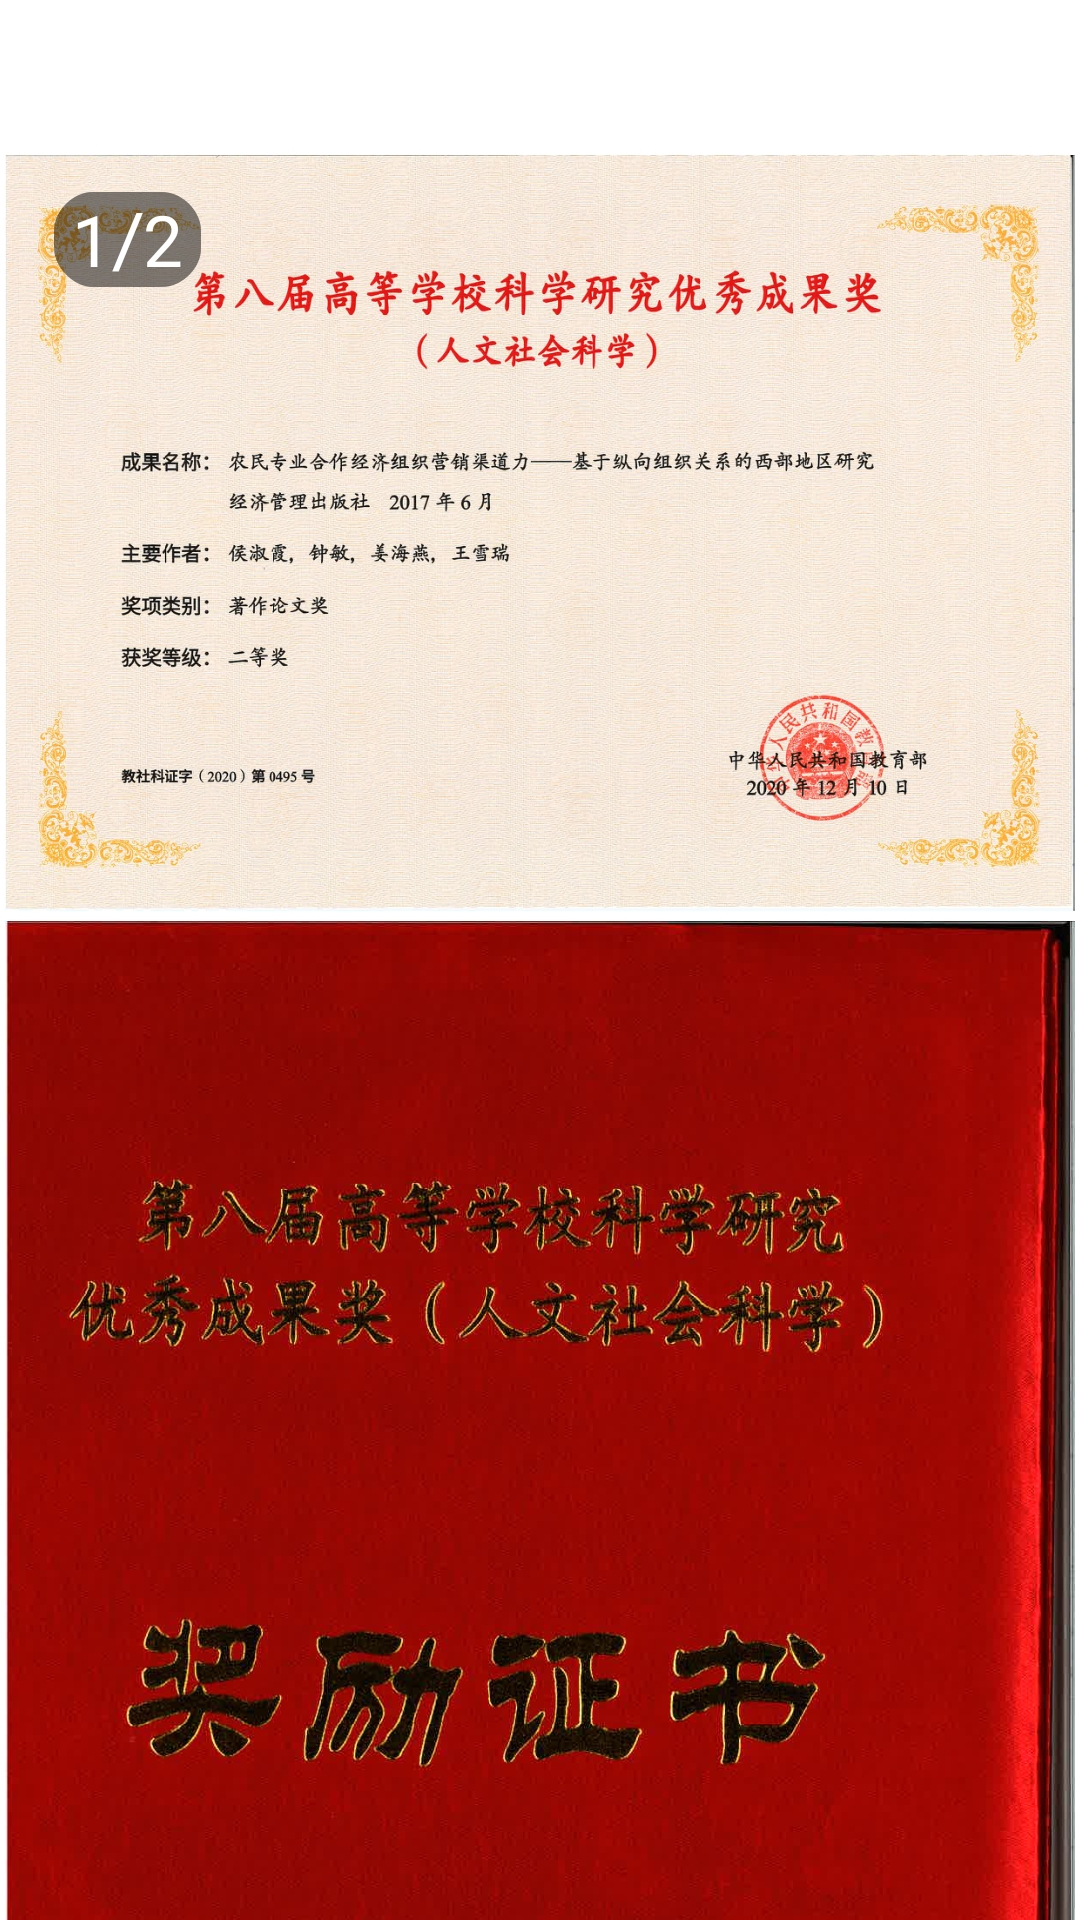 1/2
第八届高等学校科学研究优秀成果奖
（人文社会科学）
成果名称： 农民专业合作经济组织营销渠道力——基于纵向组织关系的西部地区研究
经济管理出版社 2017 年 6 月
主要作者： 侯淑霞，钟敏，姜海燕，王雪瑞
奖项类别： 著作论文奖
获奖等级： 二等奖
中华人民共和国教育部
中华人民共和国教育部
2020 年 12 月 10 日
教社科证字（2020）第 0495 号
第八届高等学校科学研究
优秀成果奖（人文社会科学）
奖励证书